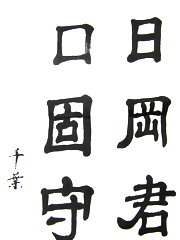 日岡君
口固守
千葉